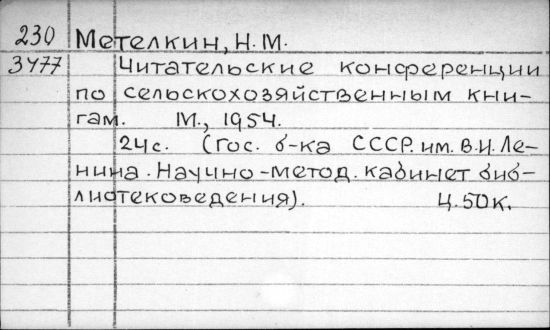 230 Метелкин, Н.М.
3477 Читательские конференции
по сельскохозяйственным кни-
гам. М., 1954.
24с. (Гос. б-ка СССР им. В.И. Ле-
нина. Научно-метод. кабинет биб-
лиотековедения). Ц. 50к.